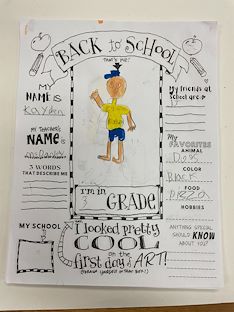 BACK to SCHOOL
THAT'S ME!
MY
NAME IS
Kayden
My friends at
school are
MY TEACHER'S
NAME is
3 WORDS
THAT DESCRIBE ME
My
FAVORITES
ANIMAL
Dog
COLOR
Black
FOOD
Pizza
HOBBIES
I'm in
3
GRADE
MY SCHOOL
I looked pretty
COOL
on the
first day of ART!
(DRAW YOURSELF IN THAT BOX!)
ANYTHING SPECIAL
I should KNOW
ABOUT YOU?